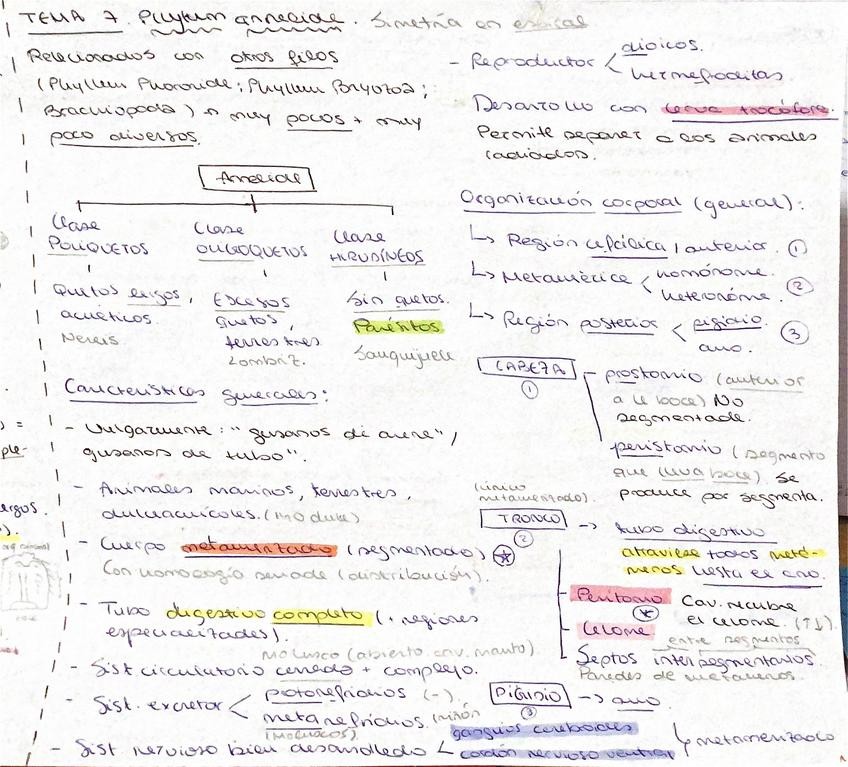 TEMA 7. Phylum annelida. Simetría en espiral
Relacionados con otros filos
(Phyllum Phoronida; Phyllum Bryozoa;
Brachiopoda) → muy pocos + muy
poco diversos.
Annelida
Clase
POLIQUETOS
Quetos largos,
acuáticos.
Nereis
Clase
OLIGOQUETOS
Escasos
quetos,
terrestres
Lombriz.
Clase
HIRUDÍNEOS
Sin quetos.
Parásitos.
Sanguijuela
Características generales:
- Vulgarmente: "gusanos de arena",
gusanos de tubo".
- Animales marinos, terrestres,
dulceacuícolas. (H2O dulce)
- Cuerpo metamerizado (segmentado)
Con homología seriada (distribución).
- Tubo digestivo completo (+ regiones
especializadas).
Molusco (abierto cav. manto)
- Sist circulatorio cerrado + complejo.
- Sist. excretor < protonefridios (-).
metanefridios (riñón
(moluscos).
- Sist nervioso bien desarrollado < ganglios cerebroides
cordón nervioso ventral
metamerizado
- Reproductor < dioicos.
hermafroditas
Desarrollo con larva trocófora.
Permite separar a los animales
radiados.
Organización corporal (general):
↳ Región cefálica / anterior. ①
↳ Metamérica < homónoma.
heterónoma. ②
↳ Región posterior < pigidio.
ano. ③
CABEZA
①
- prostomio (anterior
a la boca) No
segmentada.
peristomio (segmento
que lleva boca). Se
produce por segmenta.
(único
metamerizado).
TRONCO
②
→ tubo digestivo
atraviesa todos metá-
meros hasta el ano.
- Peritoneo Cav. recubre
el celoma. (↑↓)
- Celoma
entre segmentos
Septos intersegmentarios.
Paredes de metámeros.
PIGIDIO → ano.
③